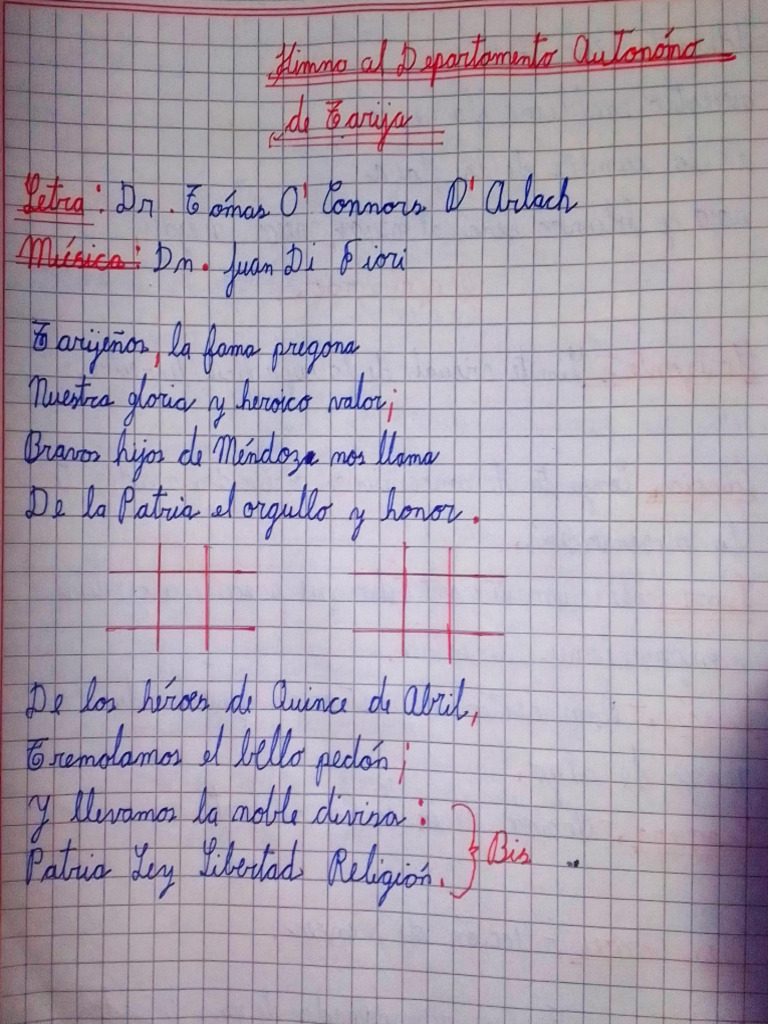 Himno al Departamento Autonóno
de Tarija
Letra: Dr. Tomas O' Connors D' Arlach
Música: Dn. Juan Di Fiori
Tarijeños, la fama pregona
Nuestra gloria y heroico valor;
Bravos hijos de Méndoza nos llama
De la Patria el orgullo y honor.
De los héroes de Quince de Abril,
Tremolamos el bello pedón;
Y llevamos la noble divisa:
Patria Ley Libertad Religión. Bis